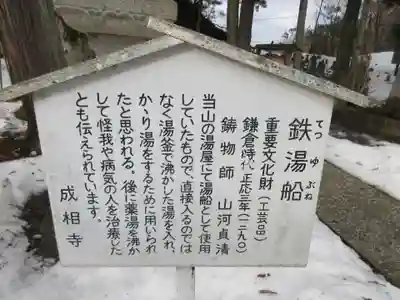 鉄湯船
てつゆぶね
重要文化財(工芸品)
鎌倉時代、正応三年(一二九〇)
鋳物師 山河貞清
当山の湯屋にて湯船として使用
していたもので、直接入るのでは
なく湯釜で沸かした湯を入れ、
かゝり湯をするために用いられ
たと思われる。後に薬湯を沸か
して怪我や病気の人を治療した
とも伝えられています。
成相寺